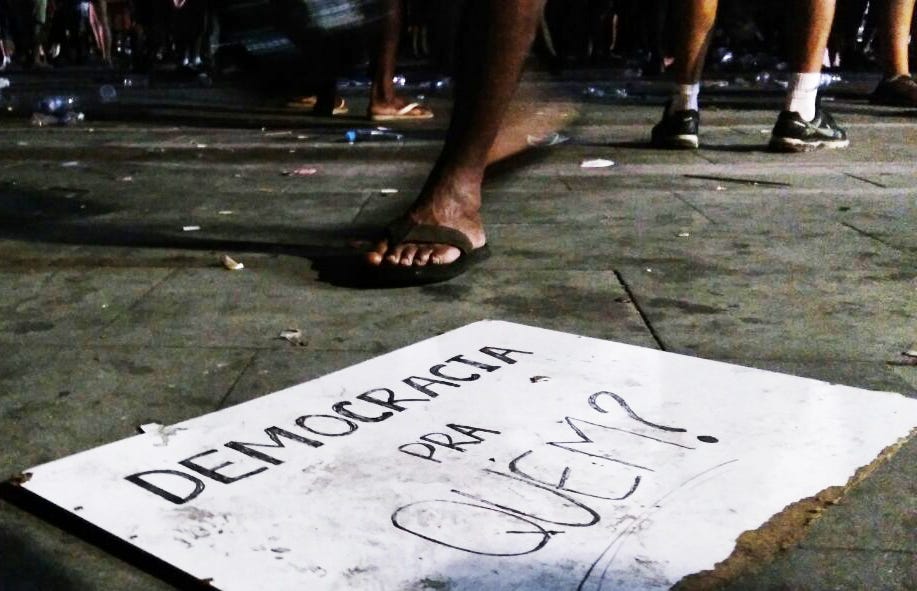 DEMOCRACIA
PRA
QUEM?